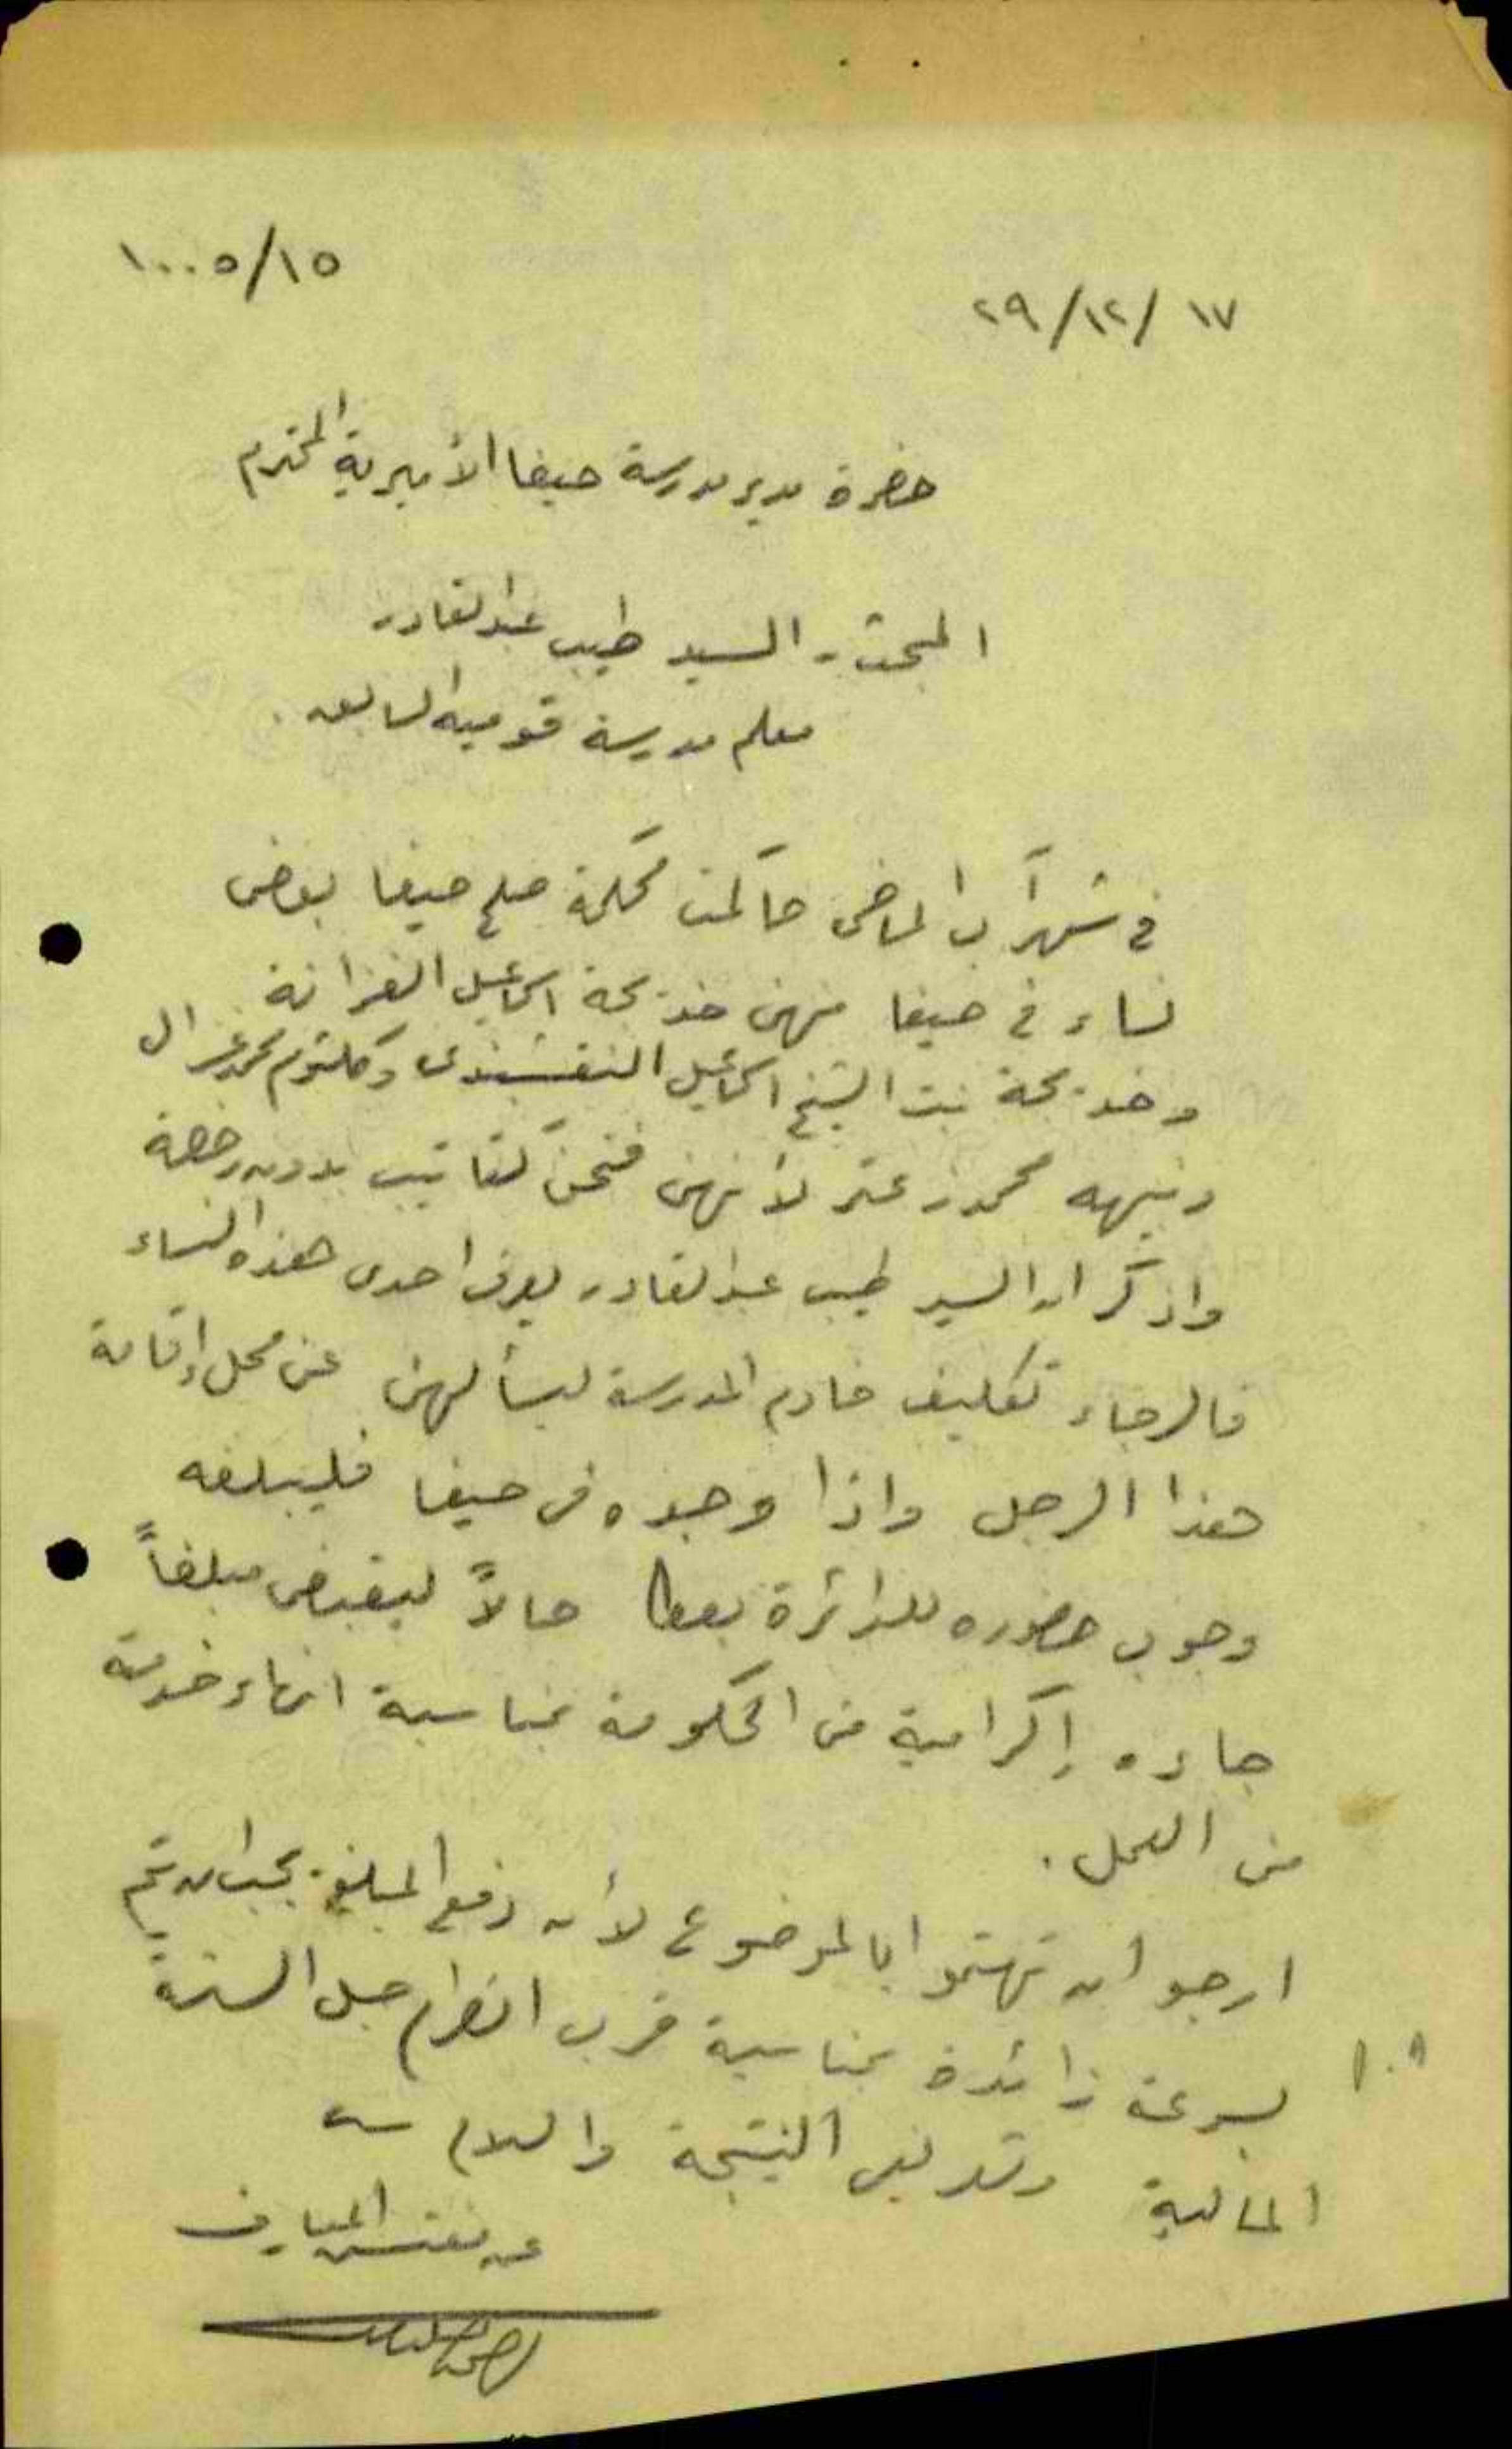 ١٠٠٠٥/١٥
١٧/١٢/٢٩
حضرة مدير مدرسة حيفا الأميرية المحترم
المبحث - السيد طيب عبد القادر
معلم مدرسة قومية السابق.
في شهر آب الماضي حاكمت محكمة صلح حيفا بعض
نساء في حيفا منهن خديجة اسماعيل الغزانة
وخديجة بنت الشيخ اسماعيل النقشبندى وكلثوم محمد غزال
ونبيهه محمود زعتر لأنهن فتحن كتاتيب بدون رخصة
واذكر ان السيد طيب عبد القادر يعرف احدى هذه النساء
فالرجاء تكليف خادم المدرسة ليسألهن عن محل إقامة
هذا الرجل واذا وجده في حيفا فليبلغه
وجوب حضوره للدائرة بعكا حالاً ليقبض مبلغاً
جاءه إكرامية من الحكومة بمناسبة انهاء خدمته
من العمل.
ارجو ان تهتموا بالموضوع لأن دفع المبلغ يجب ان يتم
بسرعة زائدة بمناسبة قرب انصرام حبل السنة
المالية وتعريفى النتيجة والسلام
عن مفتش المعارف